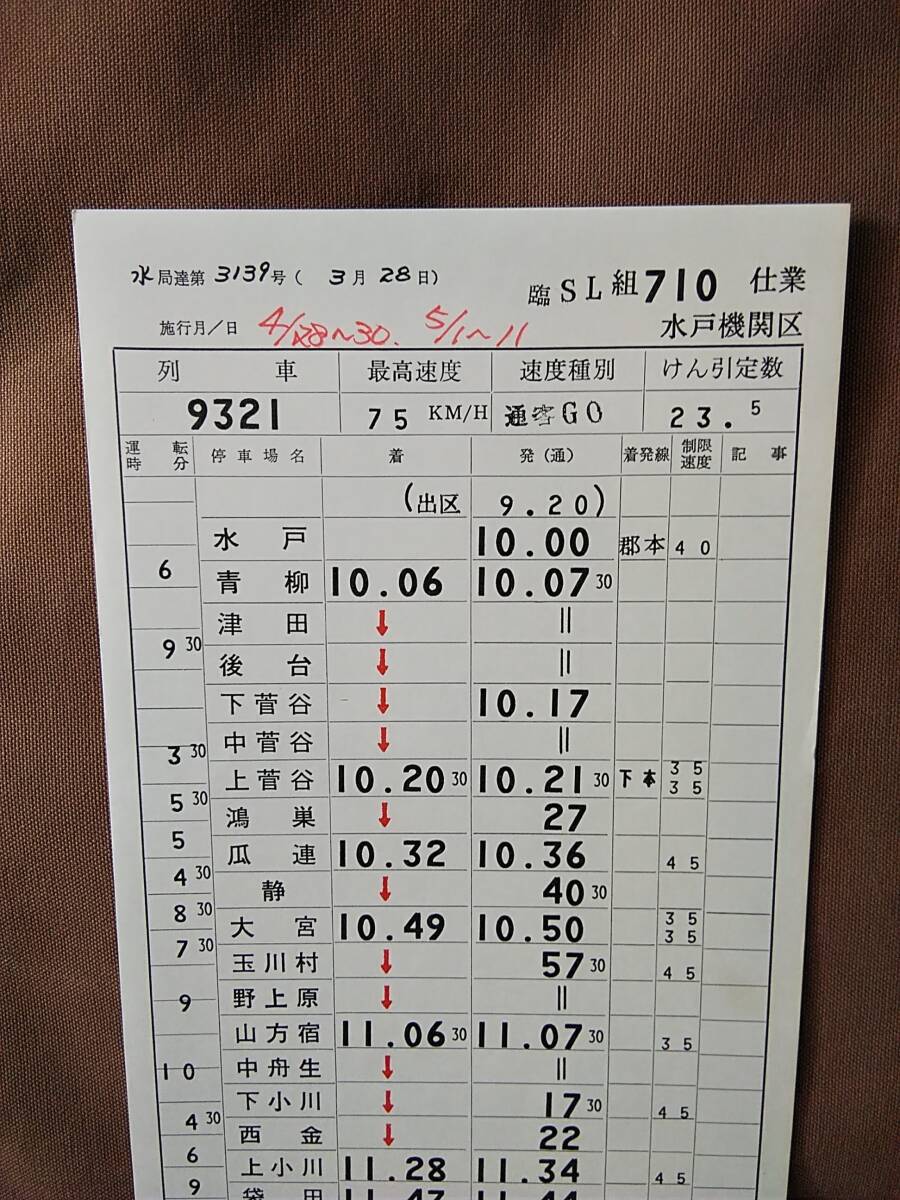 水局達第3139号( 3月28日) 臨SL組710 仕業
施行月/日 4/28~30. 5/1~11 水戸機関区
列車 最高速度 速度種別 けん引定数
9321 75 KM/H 通客G0 23.5
運転時分 停車場名 着 発(通) 着発線 制限速度 記事
(出区 9.20)
水戸 10.00 郡本 40
6
青柳 10.06 10.07 30
津田 ↓ ||
9 30
後台 ↓ ||
下菅谷 ↓ 10.17
中菅谷 ↓ ||
3 30
上菅谷 10.20 30 10.21 30 下本 35 35
5 30
鴻巣 ↓ 27
5
瓜連 10.32 10.36 45
4 30
静 ↓ 40 30
8 30
大宮 10.49 10.50 35 35
7 30
玉川村 ↓ 57 30 45
9
野上原 ↓ ||
山方宿 11.06 30 11.07 30 35
10
中舟生 ↓ ||
下小川 ↓ 17 30 45
4 30
西金 ↓ 22
6
上小川 11.28 11.34 45
9
袋田 11.43 11.44